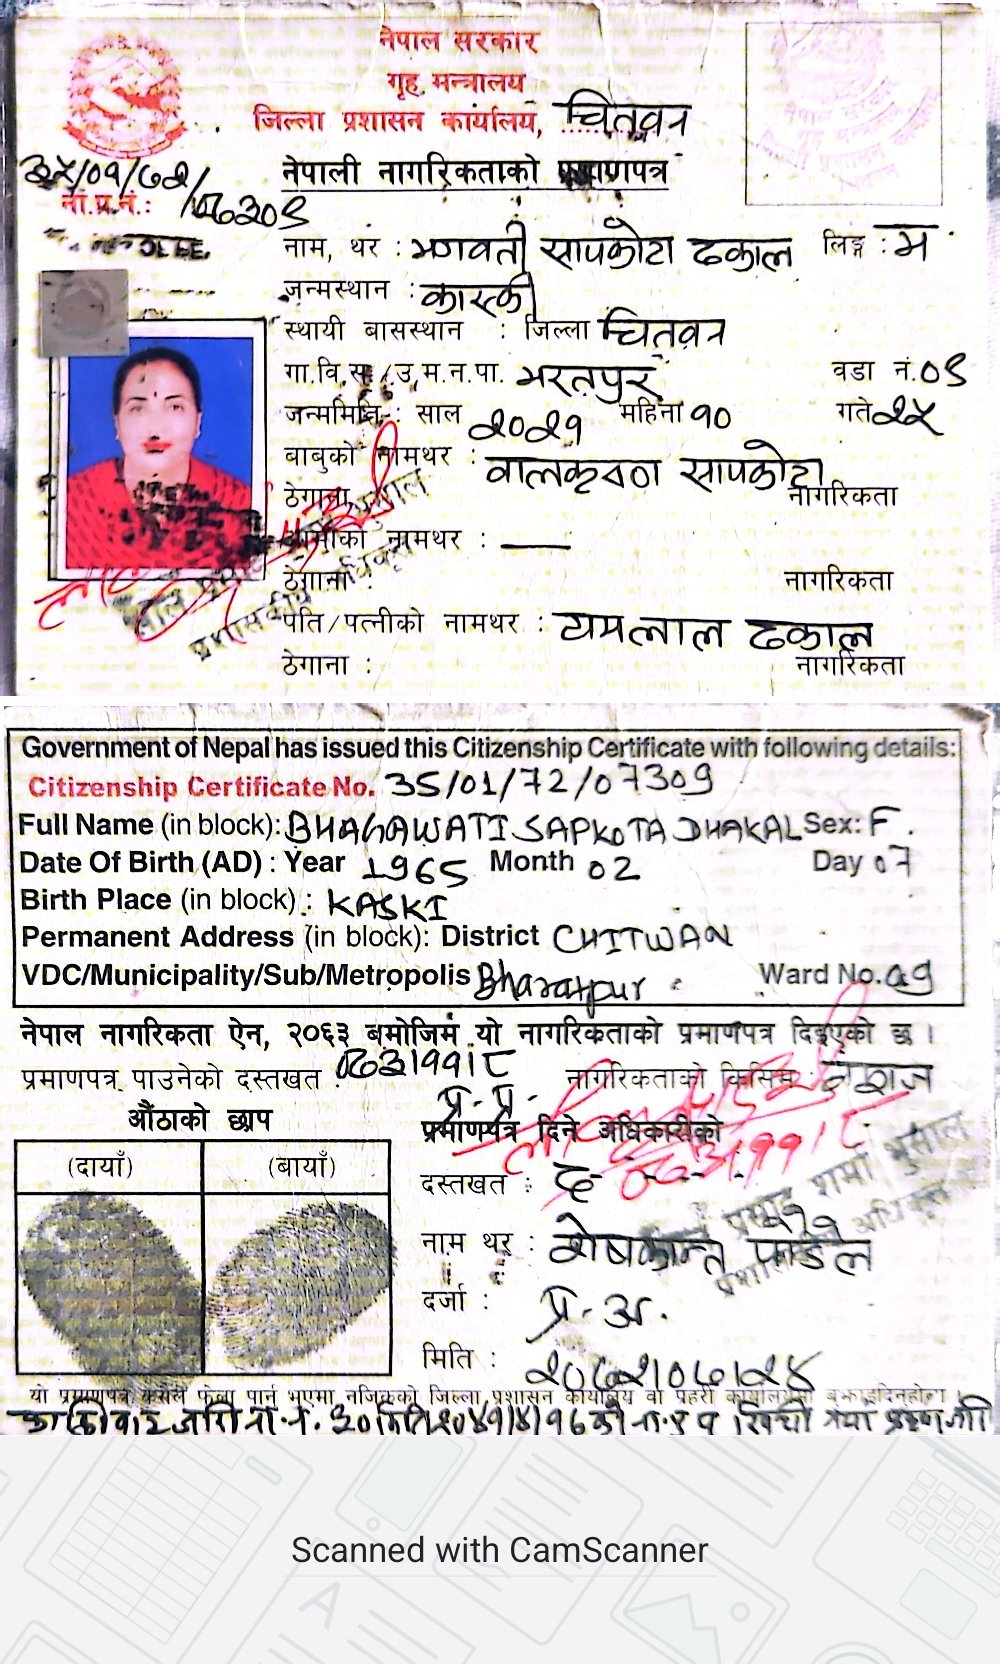 नेपाल सरकार
गृह मन्त्रालय
जिल्ला प्रशासन कार्यालय, चितवन
नेपाली नागरिकताको प्रमाणपत्र
ना.प्र.नं.: ३५/०१/७२/०७३०९
नाम, थर : भगवती सापकोटा ढकाल लिङ्ग : म
जन्मस्थान : कास्की
स्थायी बासस्थान : जिल्ला चितवन
गा.वि.स./उ.म.न.पा. भरतपुर वडा नं.०९
जन्ममिति : साल २०२१ महिना १० गते २५
बाबुको नामथर : बालकृष्ण सापकोटा
ठेगाना नागरिकता
आमाको नामथर : —
ठेगाना : नागरिकता
पति/पत्नीको नामथर : यमलाल ढकाल
ठेगाना : नागरिकता
Government of Nepal has issued this Citizenship Certificate with following details:
Citizenship Certificate No. 35/01/72/07309
Full Name (in block): BHAGAWATI SAPKOTA DHAKAL Sex: F.
Date Of Birth (AD) : Year 1965 Month 02 Day 07
Birth Place (in block) : KASKI
Permanent Address (in block): District CHITWAN
VDC/Municipality/Sub/Metropolis Bharatpur Ward No. 09
नेपाल नागरिकता ऐन, २०६३ बमोजिम यो नागरिकताको प्रमाणपत्र दिइएको छ ।
प्रमाणपत्र पाउनेको दस्तखत : नागरिकताको किसिम : वंशज
औंठाको छाप
(दायाँ) (बायाँ)
प्रमाणपत्र दिने अधिकारीको
दस्तखत : द
नाम थर : शेषकान्त पौडेल
दर्जा : प्र.अ.
मिति : २०७२/०७/२४
यो प्रमाणपत्र कसैले फेला पार्नु भएमा नजिकको जिल्ला प्रशासन कार्यालय वा प्रहरी कार्यालयमा बुझाइदिनुहोला ।
Scanned with CamScanner